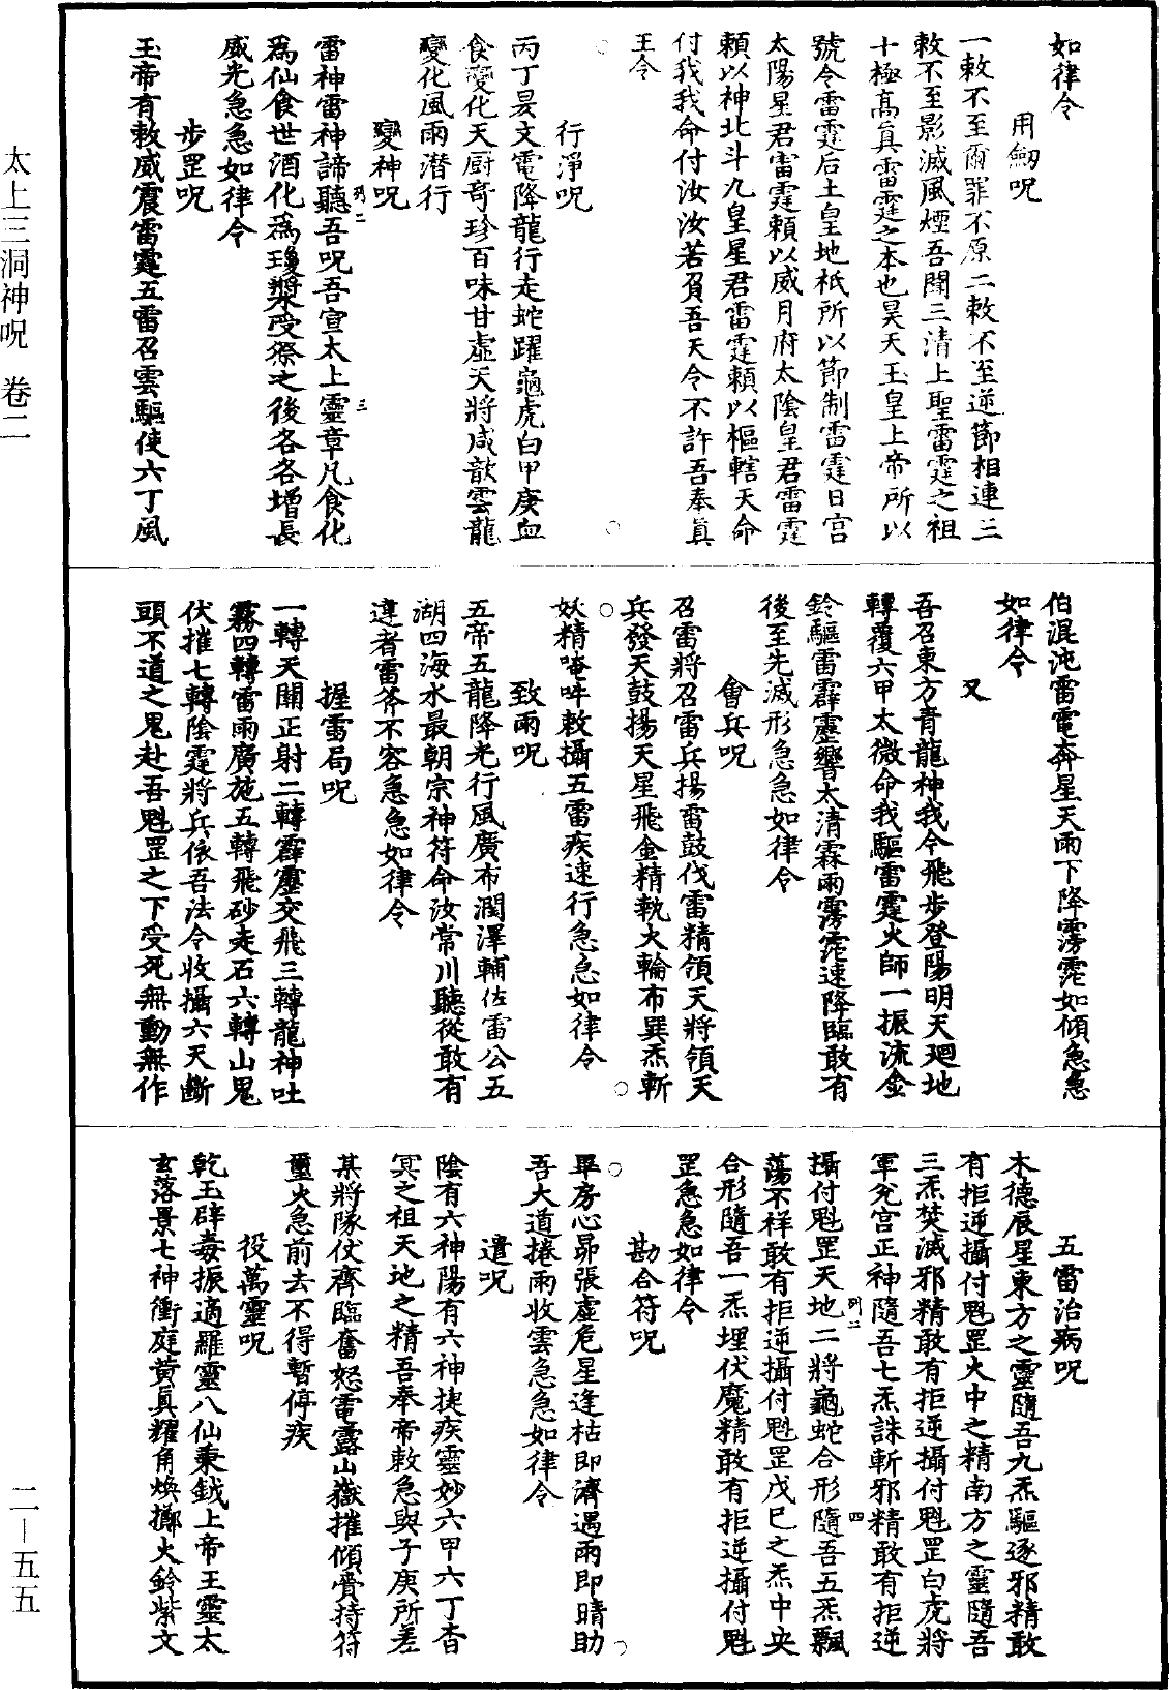 如律令
用劒呪
一敕不至爾罪不原二敕不至逆節相連三
敕不至影滅風煙吾聞三清上聖雷霆之祖
十極高眞雷霆之本也昊天玉皇上帝所以
號令雷霆后土皇地祇所以節制雷霆日宮
太陽星君雷霆賴以威月府太陰皇君雷霆
賴以神北斗九皇星君雷霆賴以樞轄天命
付我我命付汝汝若負吾天令不許吾奉眞
王令
行淨呪
丙丁炅文電降龍行走蛇躍龜虎白甲庚血
食變化天厨奇珍百味甘虛天將咸歆雲龍
變化風雨潛行
變神呪
雷神雷神諦聽吾呪吾宣太上靈章凡食化
爲仙食世酒化爲瓊漿受祭之後各各增長
威光急急如律令
步罡呪
玉帝有敕威震雷霆五雷召雲驅使六丁風
伯混沌雷電奔星天雨下降霶霈如傾急急
如律令
又
吾召東方青龍神我令飛步登陽明天廻地
轉覆六甲太微命我驅雷霆火師一振流金
鈴驅雷霹靂響太清霖雨霶霈速降臨敢有
後至先滅形急急如律令
會兵呪
召雷將召雷兵揚雷鼓伐雷精領天將領天
兵發天鼓揚天星飛金精執火輪布巽炁斬
妖精唵吽敕攝五雷疾速行急急如律令
致雨呪
五帝五龍降光行風廣布潤澤輔佐雷公五
湖四海水最朝宗神符命汝常川聽從敢有
違者雷斧不容急急如律令
握雷局呪
一轉天關正射二轉霹靂交飛三轉龍神吐
霧四轉雷雨廣施五轉飛砂走石六轉山鬼
伏摧七轉陰霆將兵依吾法令收攝六天斷
頭不道之鬼赴吾魁罡之下受死無動無作
五雷治病呪
木德辰星東方之靈隨吾九炁驅逐邪精敢
有拒逆攝付魁罡火中之精南方之靈隨吾
三炁焚滅邪精敢有拒逆攝付魁罡白虎將
軍兌宮正神隨吾七炁誅斬邪精敢有拒逆
攝付魁罡天地二將龜蛇合形隨吾五炁飄
蕩不祥敢有拒逆攝付魁罡戊巳之炁中央
合形隨吾一炁埋伏魔精敢有拒逆攝付魁
罡急急如律令
勘合符呪
畢房心昴張虛危星逢枯即濟遇雨即晴助
吾大道捲雨收雲急急如律令
遣呪
陰有六神陽有六神捷疾靈妙六甲六丁杳
冥之祖天地之精吾奉帝敕急與子庚所差
某將隊仗齊臨奮怒電露山嶽摧傾賫持符
璽火急前去不得暫停疾
役萬靈呪
乾玉辟毒振適羅靈八仙秉鉞上帝王靈太
玄落景七神衝庭黃眞耀角煥擲火鈴紫文
太上三洞神呪 卷二
二—五五